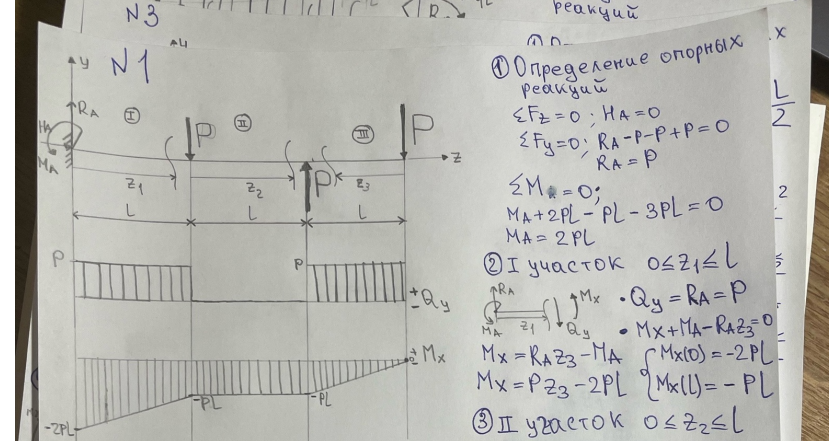 N3
реакций
N1
y
RA
I
II
III
HA
MA
P
P
P
z
z1
z2
z3
L
L
L
P
P
+
-
Qy
Mx
-2PL
-PL
-PL
① Определение опорных
реакций
ΣFz=0; HA=0
ΣFy=0; RA-P-P+P=0
RA=P
ΣM =0;
MA+2PL-PL-3PL=0
MA=2PL
② I участок 0≤z1≤L
RA
MA
z1
Mx
Qy
• Qy=RA=P
• Mx+MA-RAz3=0
Mx=RAz3-MA
Mx=Pz3-2PL
{Mx(0)=-2PL
Mx(L)=-PL
③ II участок 0≤z2≤L
x
L
2
2